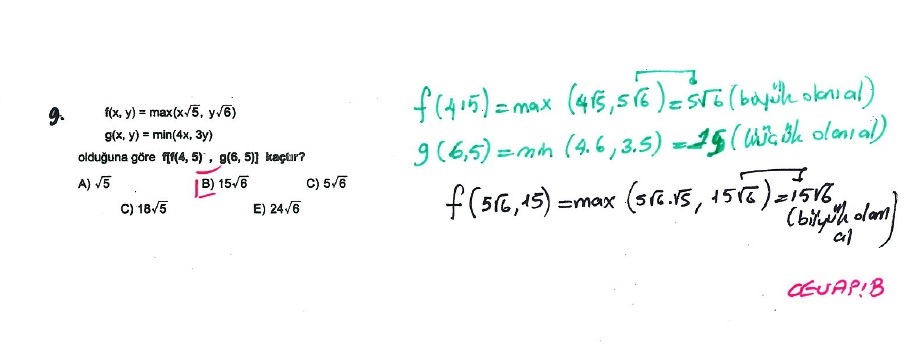 9.
f(x, y) = max(x√5, y√6)
g(x, y) = min(4x, 3y)
olduğuna göre f[f(4, 5) , g(6, 5)] kaçtır?
A) √5 B) 15√6 C) 5√6
C) 18√5 E) 24√6
f(4,5) = max (4√5, 5√6) = 5√6 (büyük olanı al)
g(6,5) = min (4.6, 3.5) = 15 (küçük olanı al)
f(5√6, 15) = max (5√6.√5, 15√6) = 15√6
(büyük olanı
al)
CEVAP: B